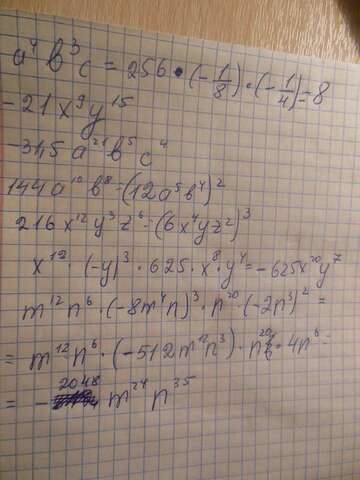 a⁴b³c = 256 · (-1/8) · (-1/4) = 8
-21x⁹y¹⁵
-315a²¹b⁵c⁴
144a¹⁰b⁸ = (12a⁵b⁴)²
216x¹²y³z⁶ = (6x⁴yz²)³
x¹² · (-y)³ · 625 · x⁸ · y⁴ = -625x²⁰y⁷
m¹²n⁶ · (-8m⁴n)³ · n²⁰ (-2n³)² =
= m¹²n⁶ · (-512m¹²n³) · n²⁰ · 4n⁶ =
= -2048 m²⁴n³⁵